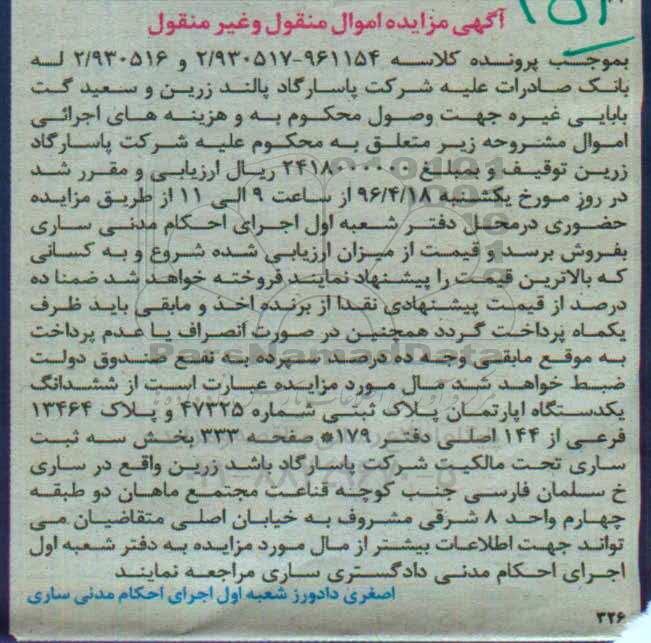 ۲۵۲
آگهی مزایده اموال منقول وغیر منقول
بموجب پرونده کلاسه ۹۶۱۱۵۴-۲/۹۳۰۵۱۷ و ۲/۹۳۰۵۱۶ لـه
بانک صادرات علیه شرکت پاسارگاد پالند زرین و سعید گت
بابایی غیره جهت وصول محکوم به و هزینه های اجرائی
اموال مشروحه زیر متعلق به محکوم علیه شرکت پاسارگاد
زرین توقیف و بمبلغ ۲۴۱۸۰۰۰۰۰۰ ریال ارزیابی و مقرر شد
در روز مورخ یکشنبه ۹۶/۴/۱۸ از ساعت ۹ الی ۱۱ از طریق مزایده
حضوری درمحل دفتر شعبه اول اجرای احکام مدنی ساری
بفروش برسد و قیمت از میزان ارزیابی شده شروع و به کسانی
که بالاترین قیمت را پیشنهاد نمایند فروخته خواهد شد ضمنا ده
درصد از قیمت پیشنهادی نقدا از برنده اخذ و مابقی باید ظرف
یکماه پرداخت گردد همچنین در صورت انصراف یا عدم پرداخت
به موقع مابقی وجه ده درصد سپرده به نفع صندوق دولت
ضبط خواهد شد مال مورد مزایده عبارت است از ششدانگ
یکدستگاه اپارتمان پلاک ثبتی شماره ۴۷۳۲۵ و پلاک ۱۳۴۶۴
فرعی از ۱۴۴ اصلی دفتر ۱۷۹* صفحه ۳۳۳ بخش سه ثبت
ساری تحت مالکیت شرکت پاسارگاد باشد زرین واقع در ساری
خ سلمان فارسی جنب کوچه قناعت مجتمع ماهان دو طبقه
چهارم واحد ۸ شرقی مشروف به خیابان اصلی متقاضیان می
تواند جهت اطلاعات بیشتر از مال مورد مزایده به دفتر شعبه اول
اجرای احکام مدنی دادگستری ساری مراجعه نمایند
اصغری دادورز شعبه اول اجرای احکام مدنی ساری
۳۲۶
ParsNamadData